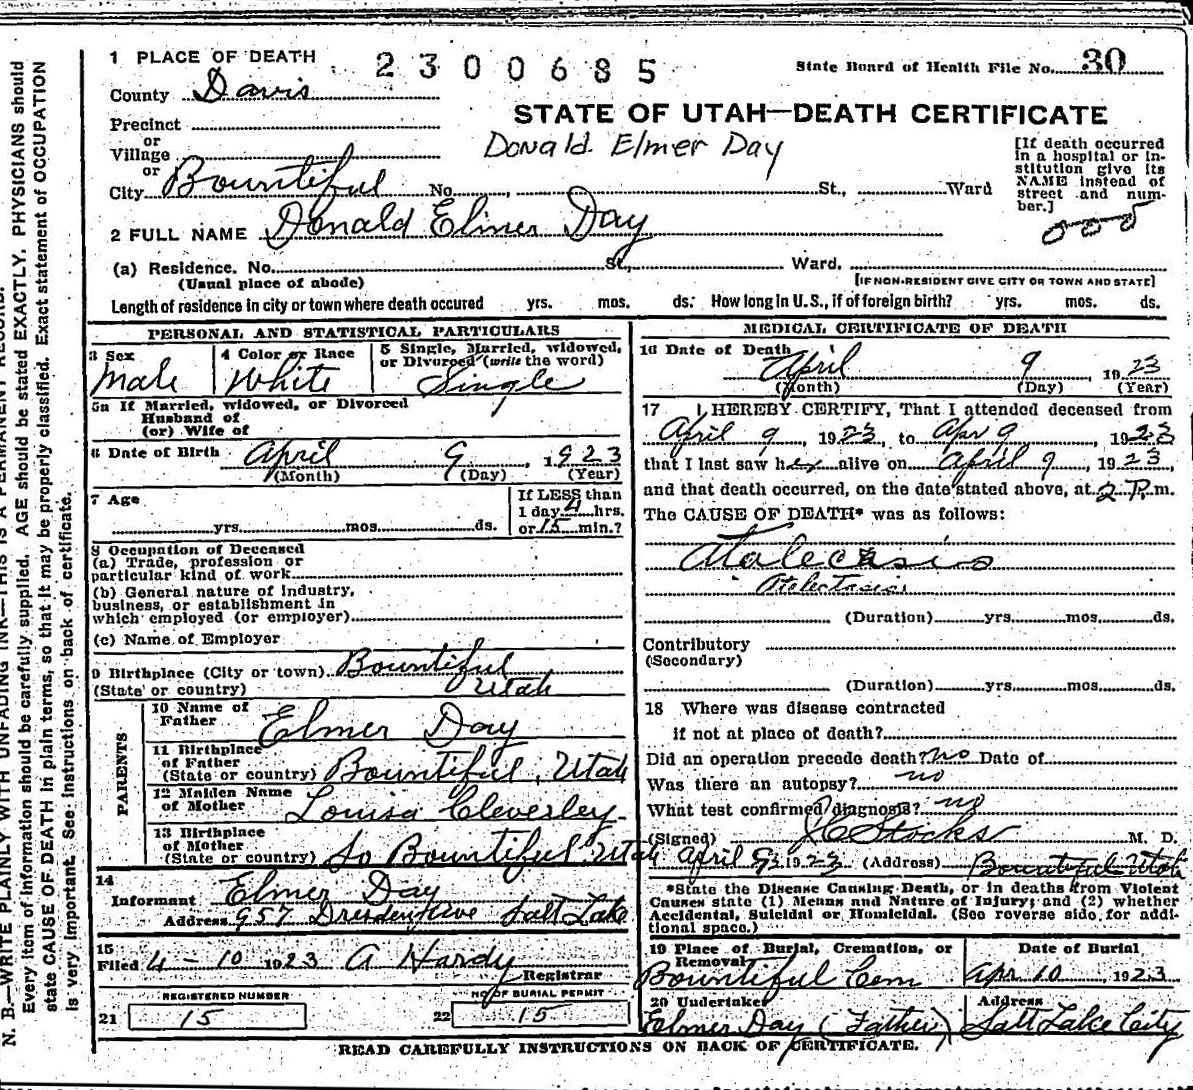 1 PLACE OF DEATH
2300685
State Board of Health File No. 30
County Davis
STATE OF UTAH—DEATH CERTIFICATE
Precinct
or
Village
or
Donald Elmer Day
[If death occurred in a hospital or in-
stitution give its
NAME instead of
street and num-
ber.]
City Bountiful No. , St., Ward
2 FULL NAME Donald Elmer Day
(a) Residence. No. St., Ward.
(Usual place of abode)
[IF NON-RESIDENT GIVE CITY OR TOWN AND STATE]
Length of residence in city or town where death occured yrs. mos. ds. How long in U.S., if of foreign birth? yrs. mos. ds.
PERSONAL AND STATISTICAL PARTICULARS
3 Sex
Male
4 Color or Race
White
5 Single, Married, widowed,
or Divorced (write the word)
Single
5a If Married, widowed, or Divorced
Husband of
(or) Wife of
6 Date of Birth April 9, 1923
(Month) (Day) (Year)
7 Age
yrs. mos. ds.
If LESS than
1 day 4 hrs.
or 15 min.?
8 Occupation of Deceased
(a) Trade, profession or
particular kind of work
(b) General nature of industry,
business, or establishment in
which employed (or employer)
(c) Name of Employer
9 Birthplace (City or town) Bountiful
(State or country) Utah
PARENTS
10 Name of
Father Elmer Day
11 Birthplace
of Father
(State or country) Bountiful, Utah
12 Maiden Name
of Mother Louisa Cleverley
13 Birthplace
of Mother
(State or country) So Bountiful Utah
14
Informant Elmer Day
Address 957 Salt Lake
15
Filed 4-10 1923 A Hardy
Registrar
REGISTERED NUMBER
21 15
NO OF BURIAL PERMIT
22 15
MEDICAL CERTIFICATE OF DEATH
16 Date of Death
April 9 1923
(Month) (Day) (Year)
17 I HEREBY CERTIFY, That I attended deceased from
April 9, 1923, to Apr 9, 1923
that I last saw h alive on April 9, 1923,
and that death occurred, on the date stated above, at 2 P.m.
The CAUSE OF DEATH* was as follows:
Atalecasis
Atelectasis
(Duration) yrs. mos. ds.
Contributory
(Secondary)
(Duration) yrs. mos. ds.
18 Where was disease contracted
if not at place of death?
Did an operation precede death? no Date of
Was there an autopsy? no
What test confirmed diagnosis? no
(Signed) J C Stocks M. D.
April 9, 1923 (Address) Bountiful Utah
*State the Disease Causing Death, or in deaths from Violent
Causes state (1) Means and Nature of Injury; and (2) whether
Accidental, Suicidal or Homicidal. (See reverse side for addi-
tional space.)
19 Place of Burial, Cremation, or
Removal
Bountiful Cem
Date of Burial
Apr 10, 1923
20 Undertaker
Elmer Day (Father)
Address
Salt Lake City
READ CAREFULLY INSTRUCTIONS ON BACK OF CERTIFICATE.
N. B.—WRITE PLAINLY WITH UNFADING INK—THIS IS A PERMANENT RECORD.
Every item of information should be carefully supplied. AGE should be stated EXACTLY. PHYSICIANS should
state CAUSE OF DEATH in plain terms, so that it may be properly classified. Exact statement of OCCUPATION
is very important. See instructions on back of certificate.